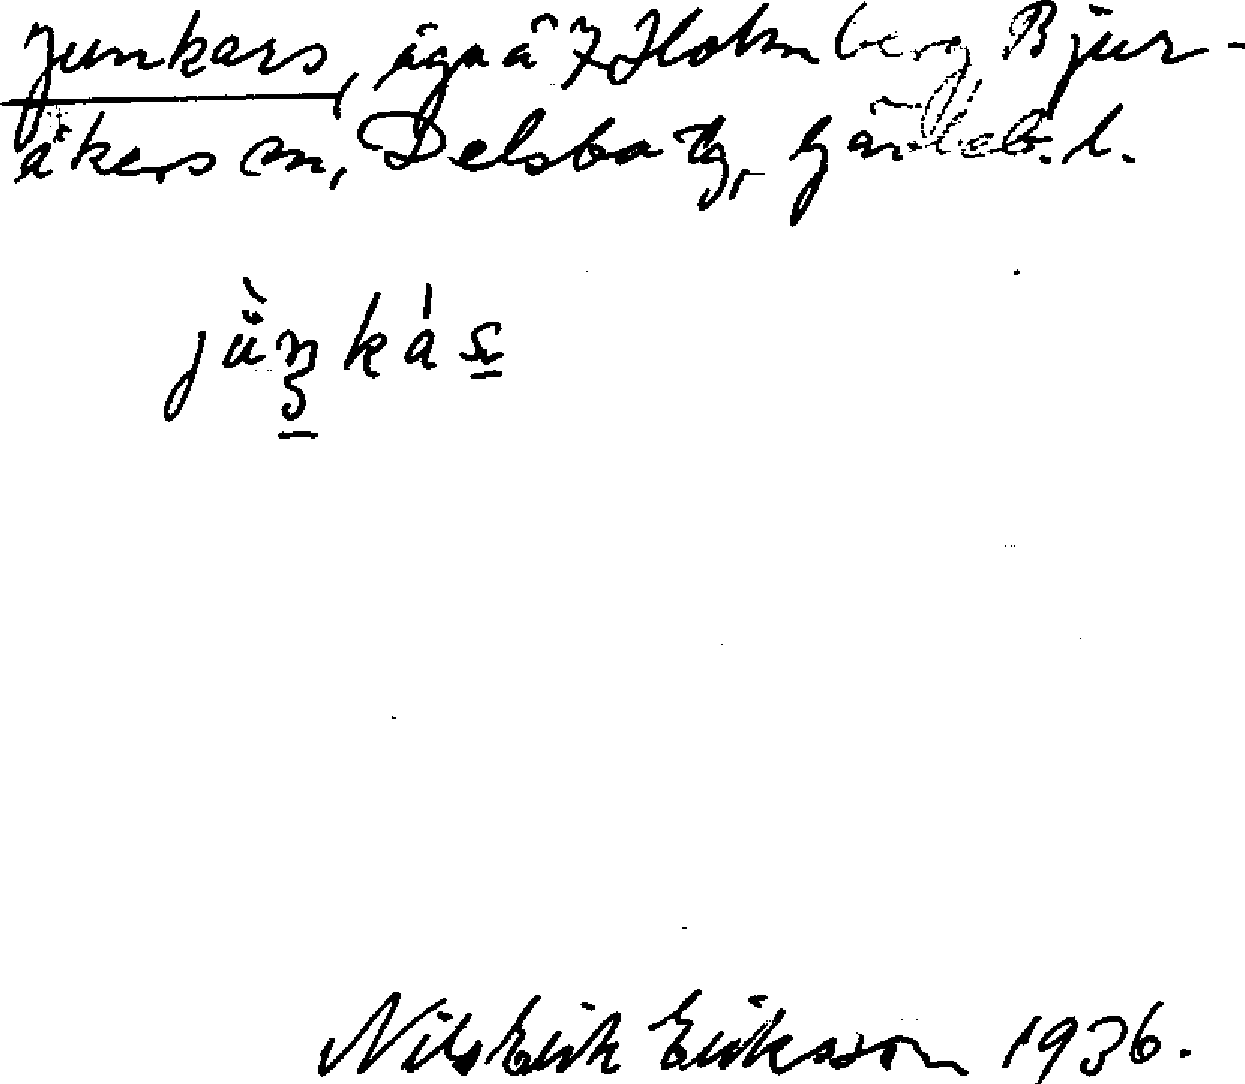 Junkers, äga å 7 Holmberg, Bjur-
åkers sn, Delsbo tg, Gävleb. l.
Nils Erik Eriksson 1936.